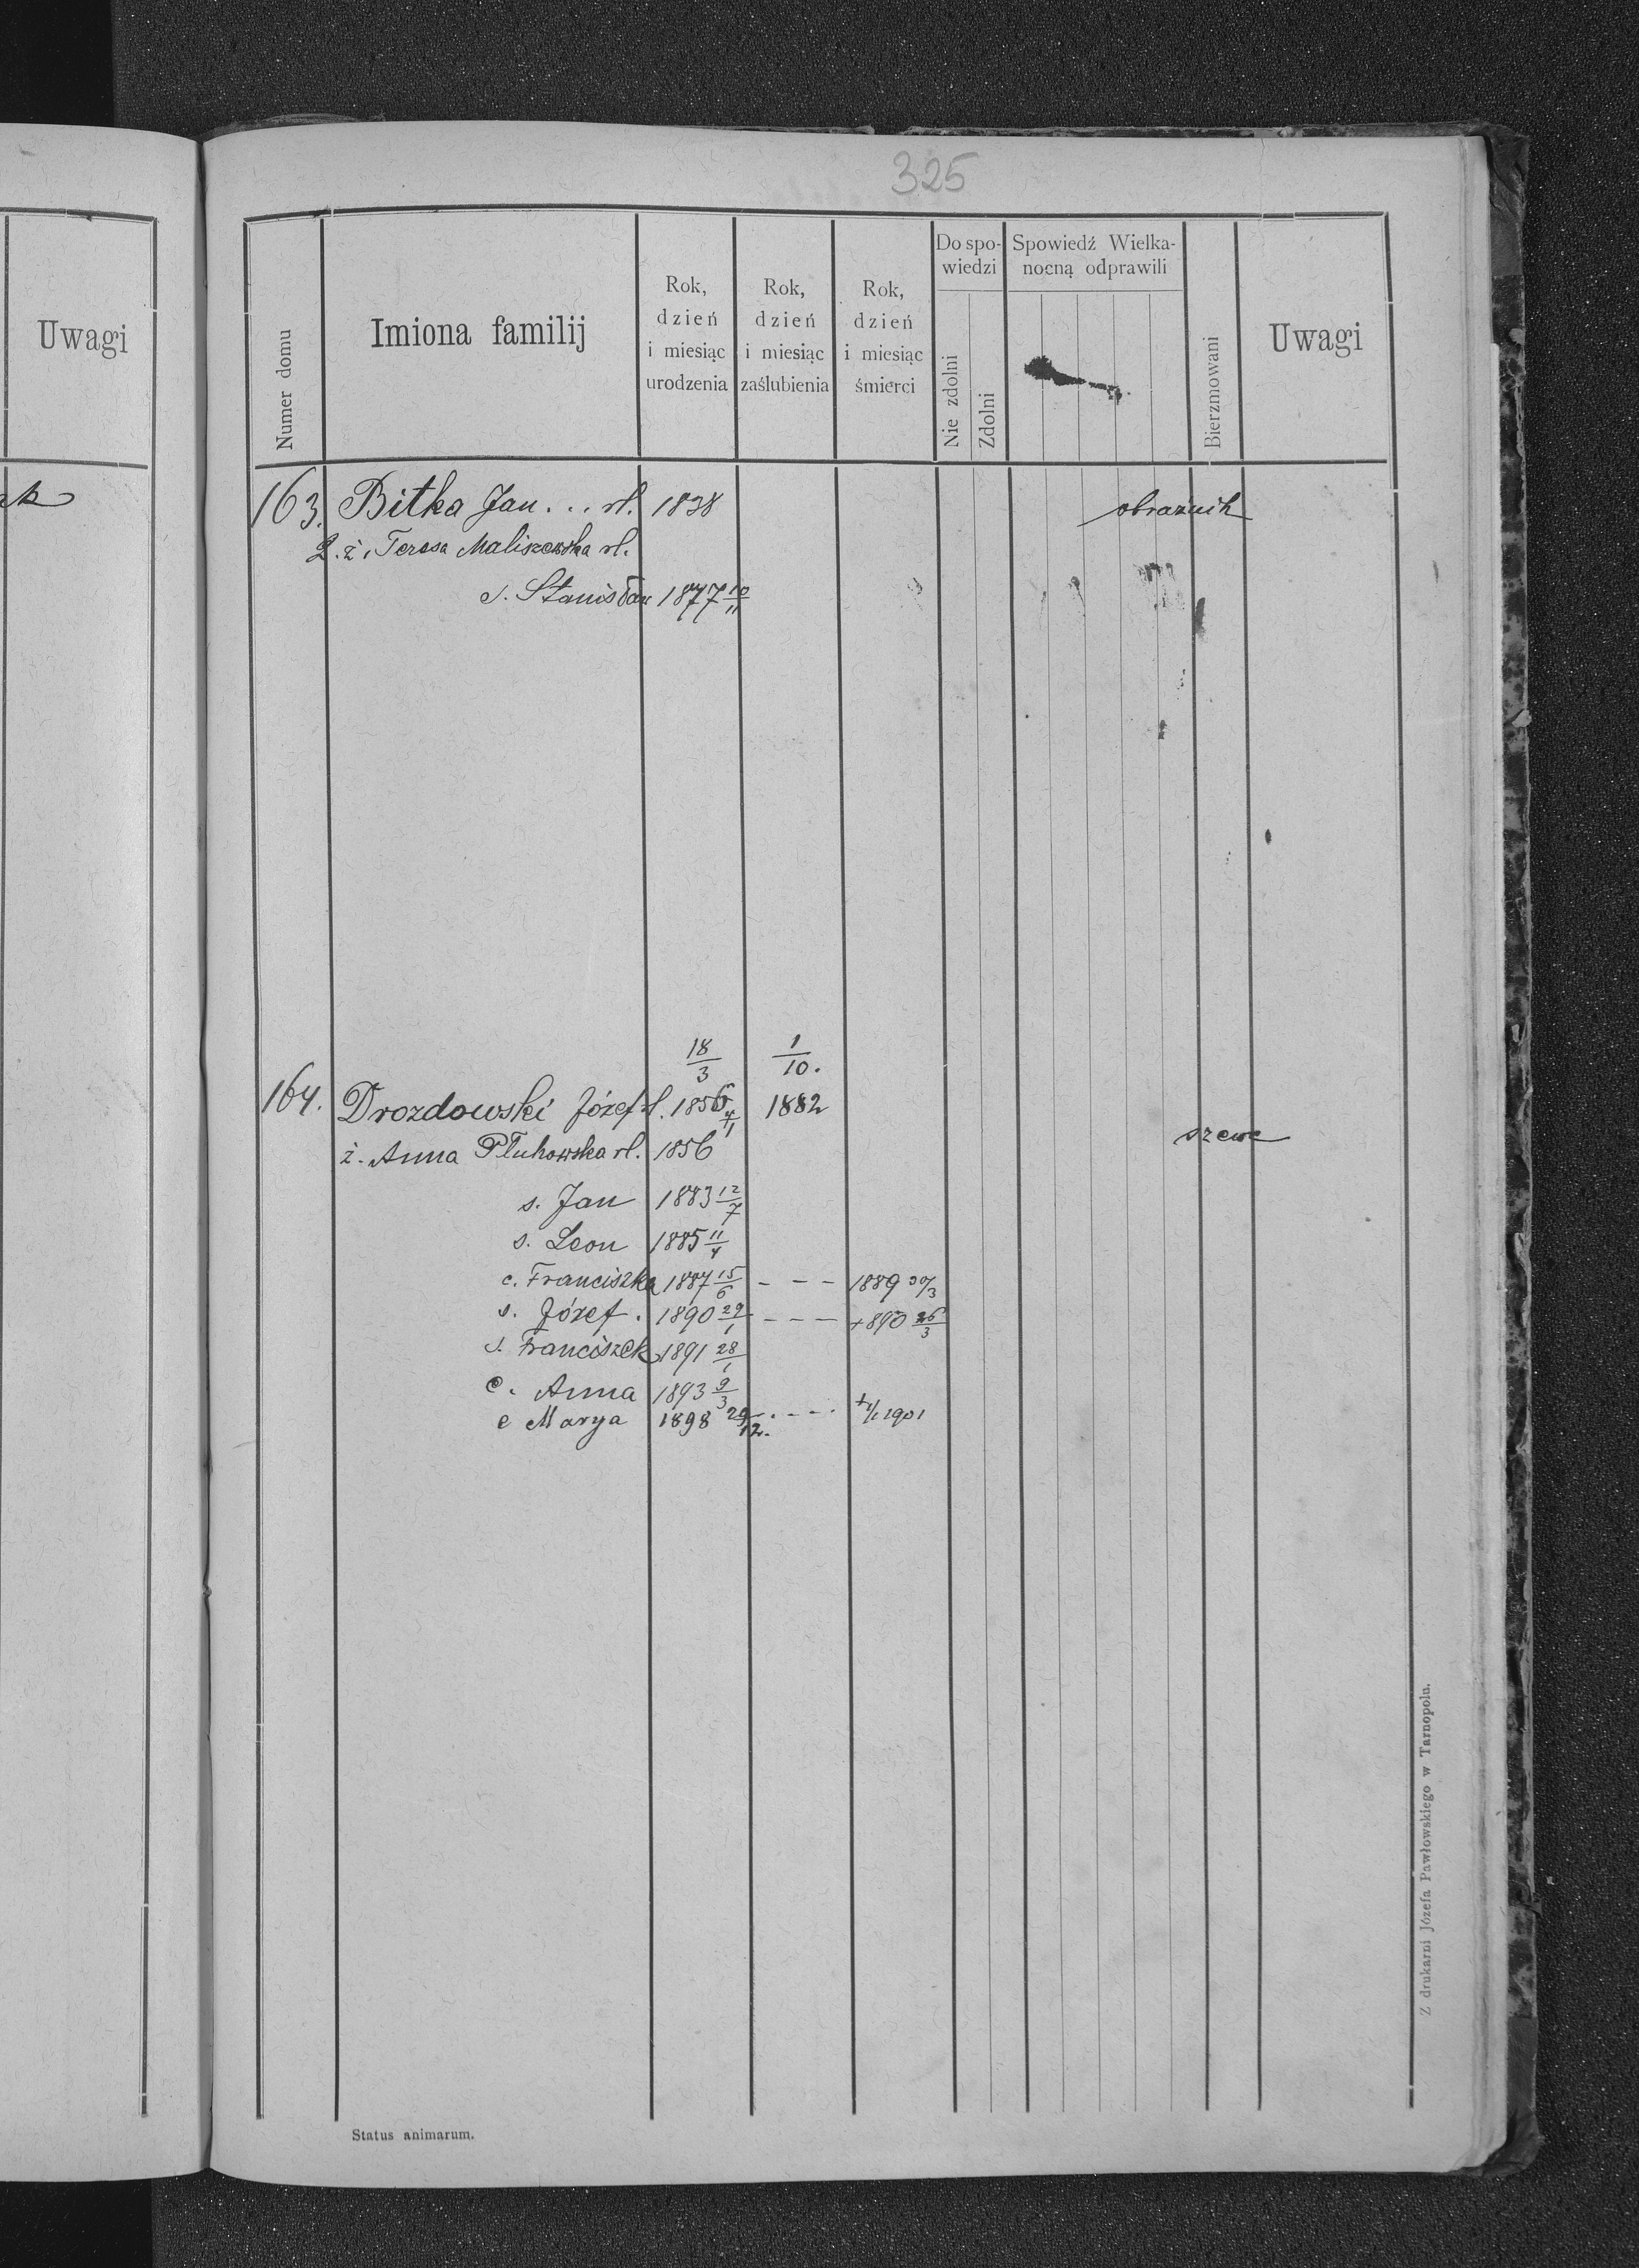 325
Uwagi
Numer domu
Imiona familij
Rok, dzień i miesiąc urodzenia
Rok, dzień i miesiąc zaślubienia
Rok, dzień i miesiąc śmierci
Do spo-
wiedzi
Nie zdolni
Zdolni
Spowiedź Wielka-
nocną odprawili
Bierzmowani
Uwagi
163. Bitka Jan . . . rl. 1838 obraźnik
2. ż. Teresa Maliszewska rl.
s. Stanisław 1877 10/11
18/3 1/10.
164. Drozdowski Józef rl. 1856 1882
4/11 szewc
ż. Anna Płuhowska rl. 1856
s. Jan 1883 12/7
s. Leon 1885 11/4
c. Franciszka 1887 15/6 - - - 1889 30/3
s. Józef . 1890 29/1 - - - +890 26/3
s. Franciszek 1891 28/1
c. Anna 1893 9/3
c Marya 1898 29/12. - - - 1901
Status animarum.
Z drukarni Józefa Pawłowskiego w Tarnopolu.